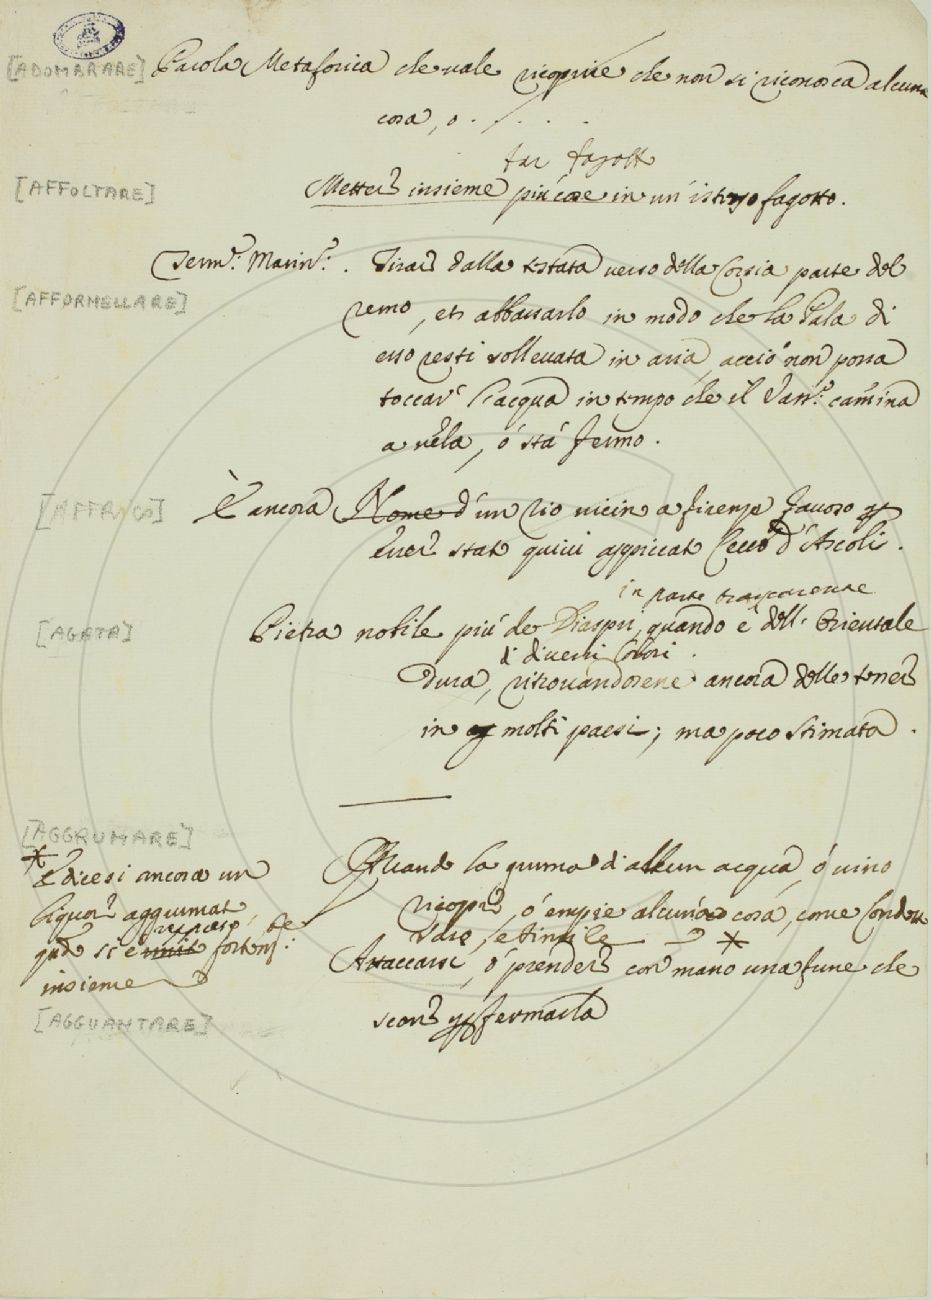 [ADOMBRARE] Parola Metaforica che vale ricoprire che non si riconosca alcuna
cosa, o . / . . .
far fagotto
[AFFOLTARE] Metter insieme più cose in un' istesso fagotto.
Term.e Marin.o . Tirar dalla testata verso della Corsia parte del
[AFFORNELLARE]
remo, et abbassarlo in modo che la Pala di
esso resti sollevata in aria, acciò non possa
toccar l'acqua in tempo che il Vass.o camina
a vela, ó stá fermo.
[AFFRICO] È ancora Nome d'un rio vicin a firenze famoso p
esser stato quivi appiccato Cecco d'Ascoli.
in parte trasparente
[AGATA] Pietra nobile più de Diaspri, quando è dell' Orientale
di diversi Colori .
Dura, ritrovandosene ancora delle tenere
in molti paesi; ma poco stimata .
[AGGRUMARE]
Quando la gruma di alcun acqua, ó vino
ricopre, ó empie alcuna cosa, come Condot
tare, e simile *
* E dicesi ancora un
liquor aggrumato
rappreso, e
qdo si è unito fortem.:
insieme
Attaccarsi, ó prender con mano una fune che
[AGGUANTARE]
scorre p fermarla